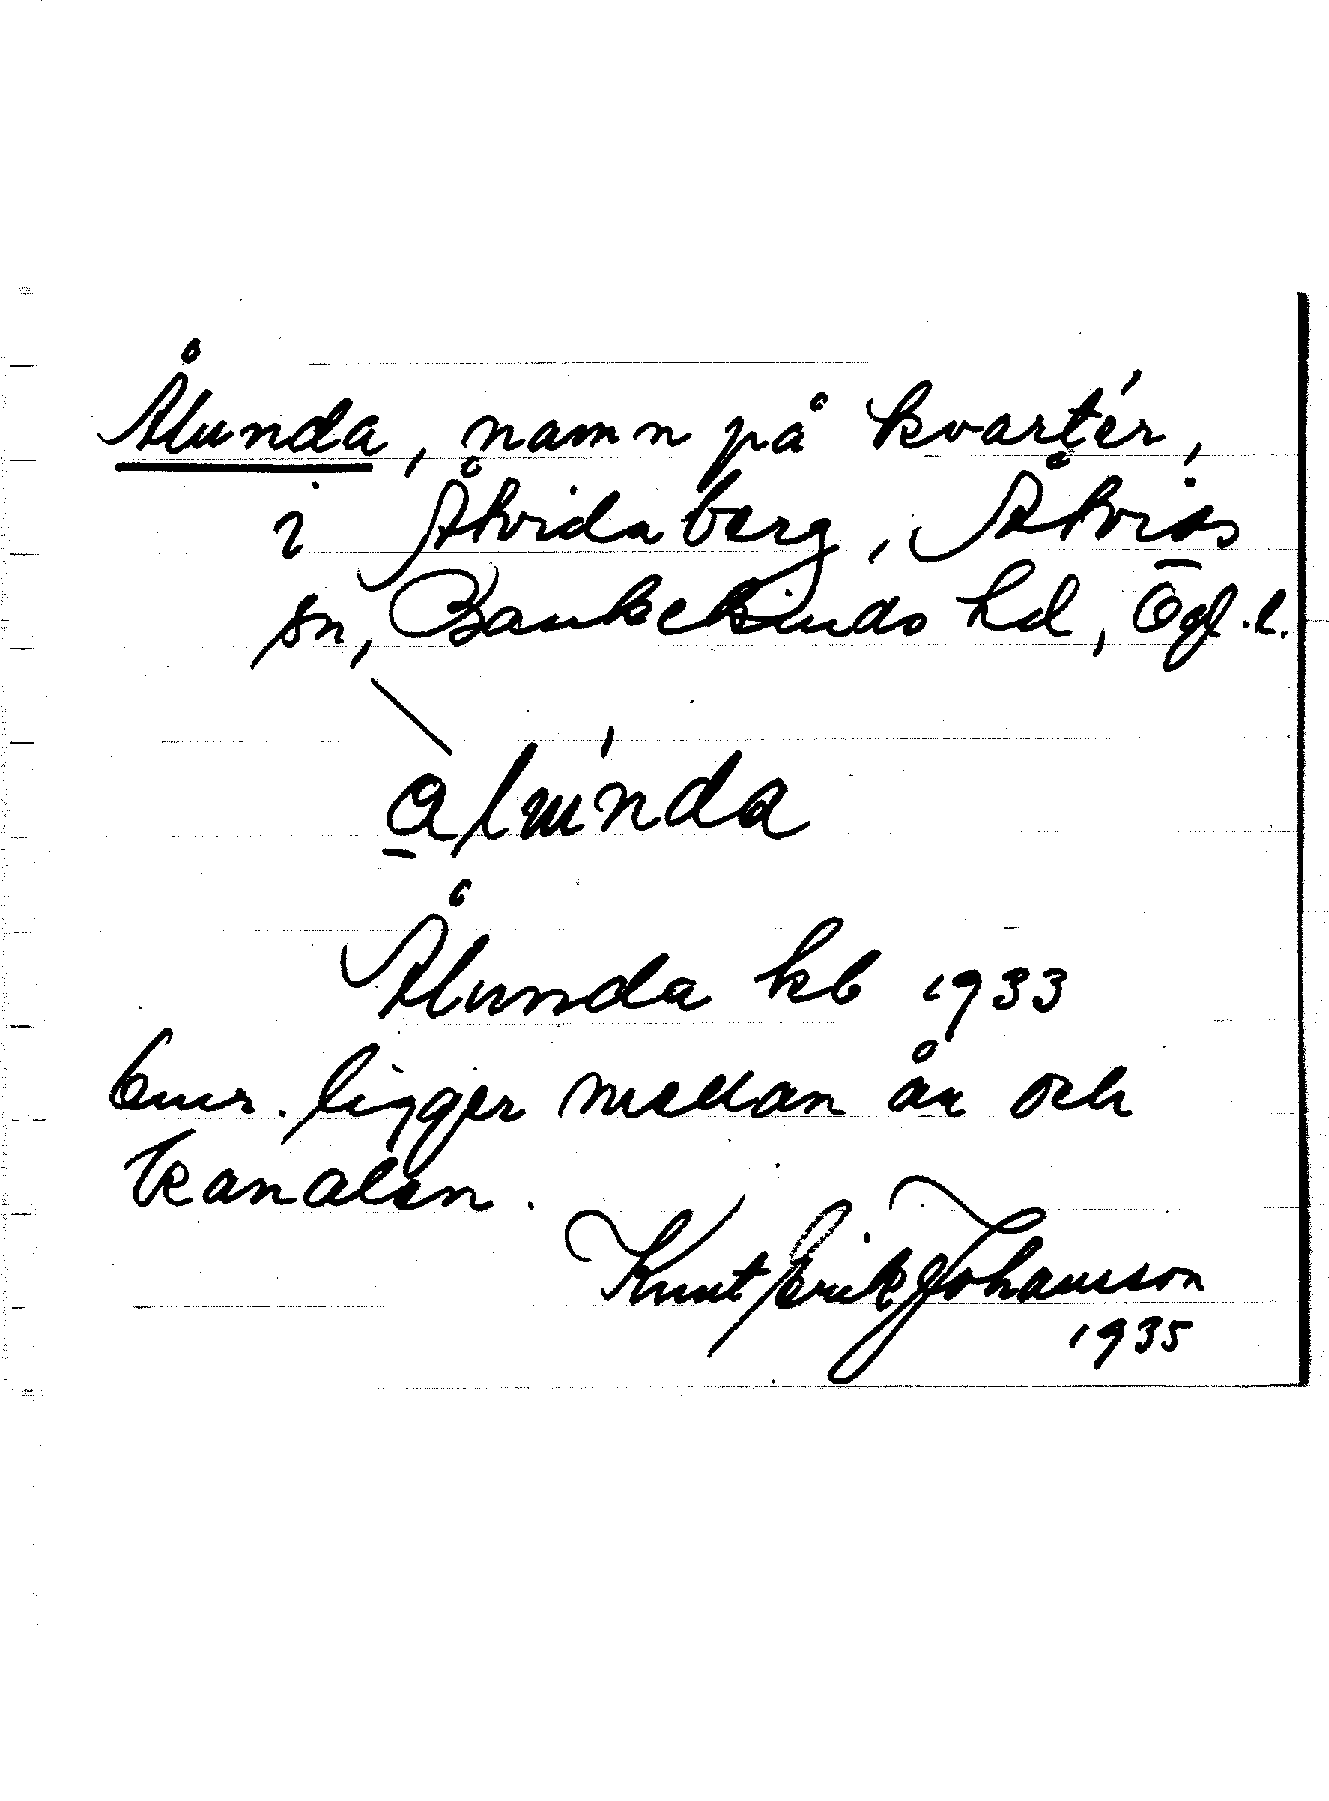 Ålunda, namn på kvartér,
i Åtvidaberg, Åtvids
sn, Bankekinds hd, Ögl. l.
alúnda
Ålunda kb 1933
Bmr. ligger mellan ån och
kanalen.
Knut Erik Johansson
1935